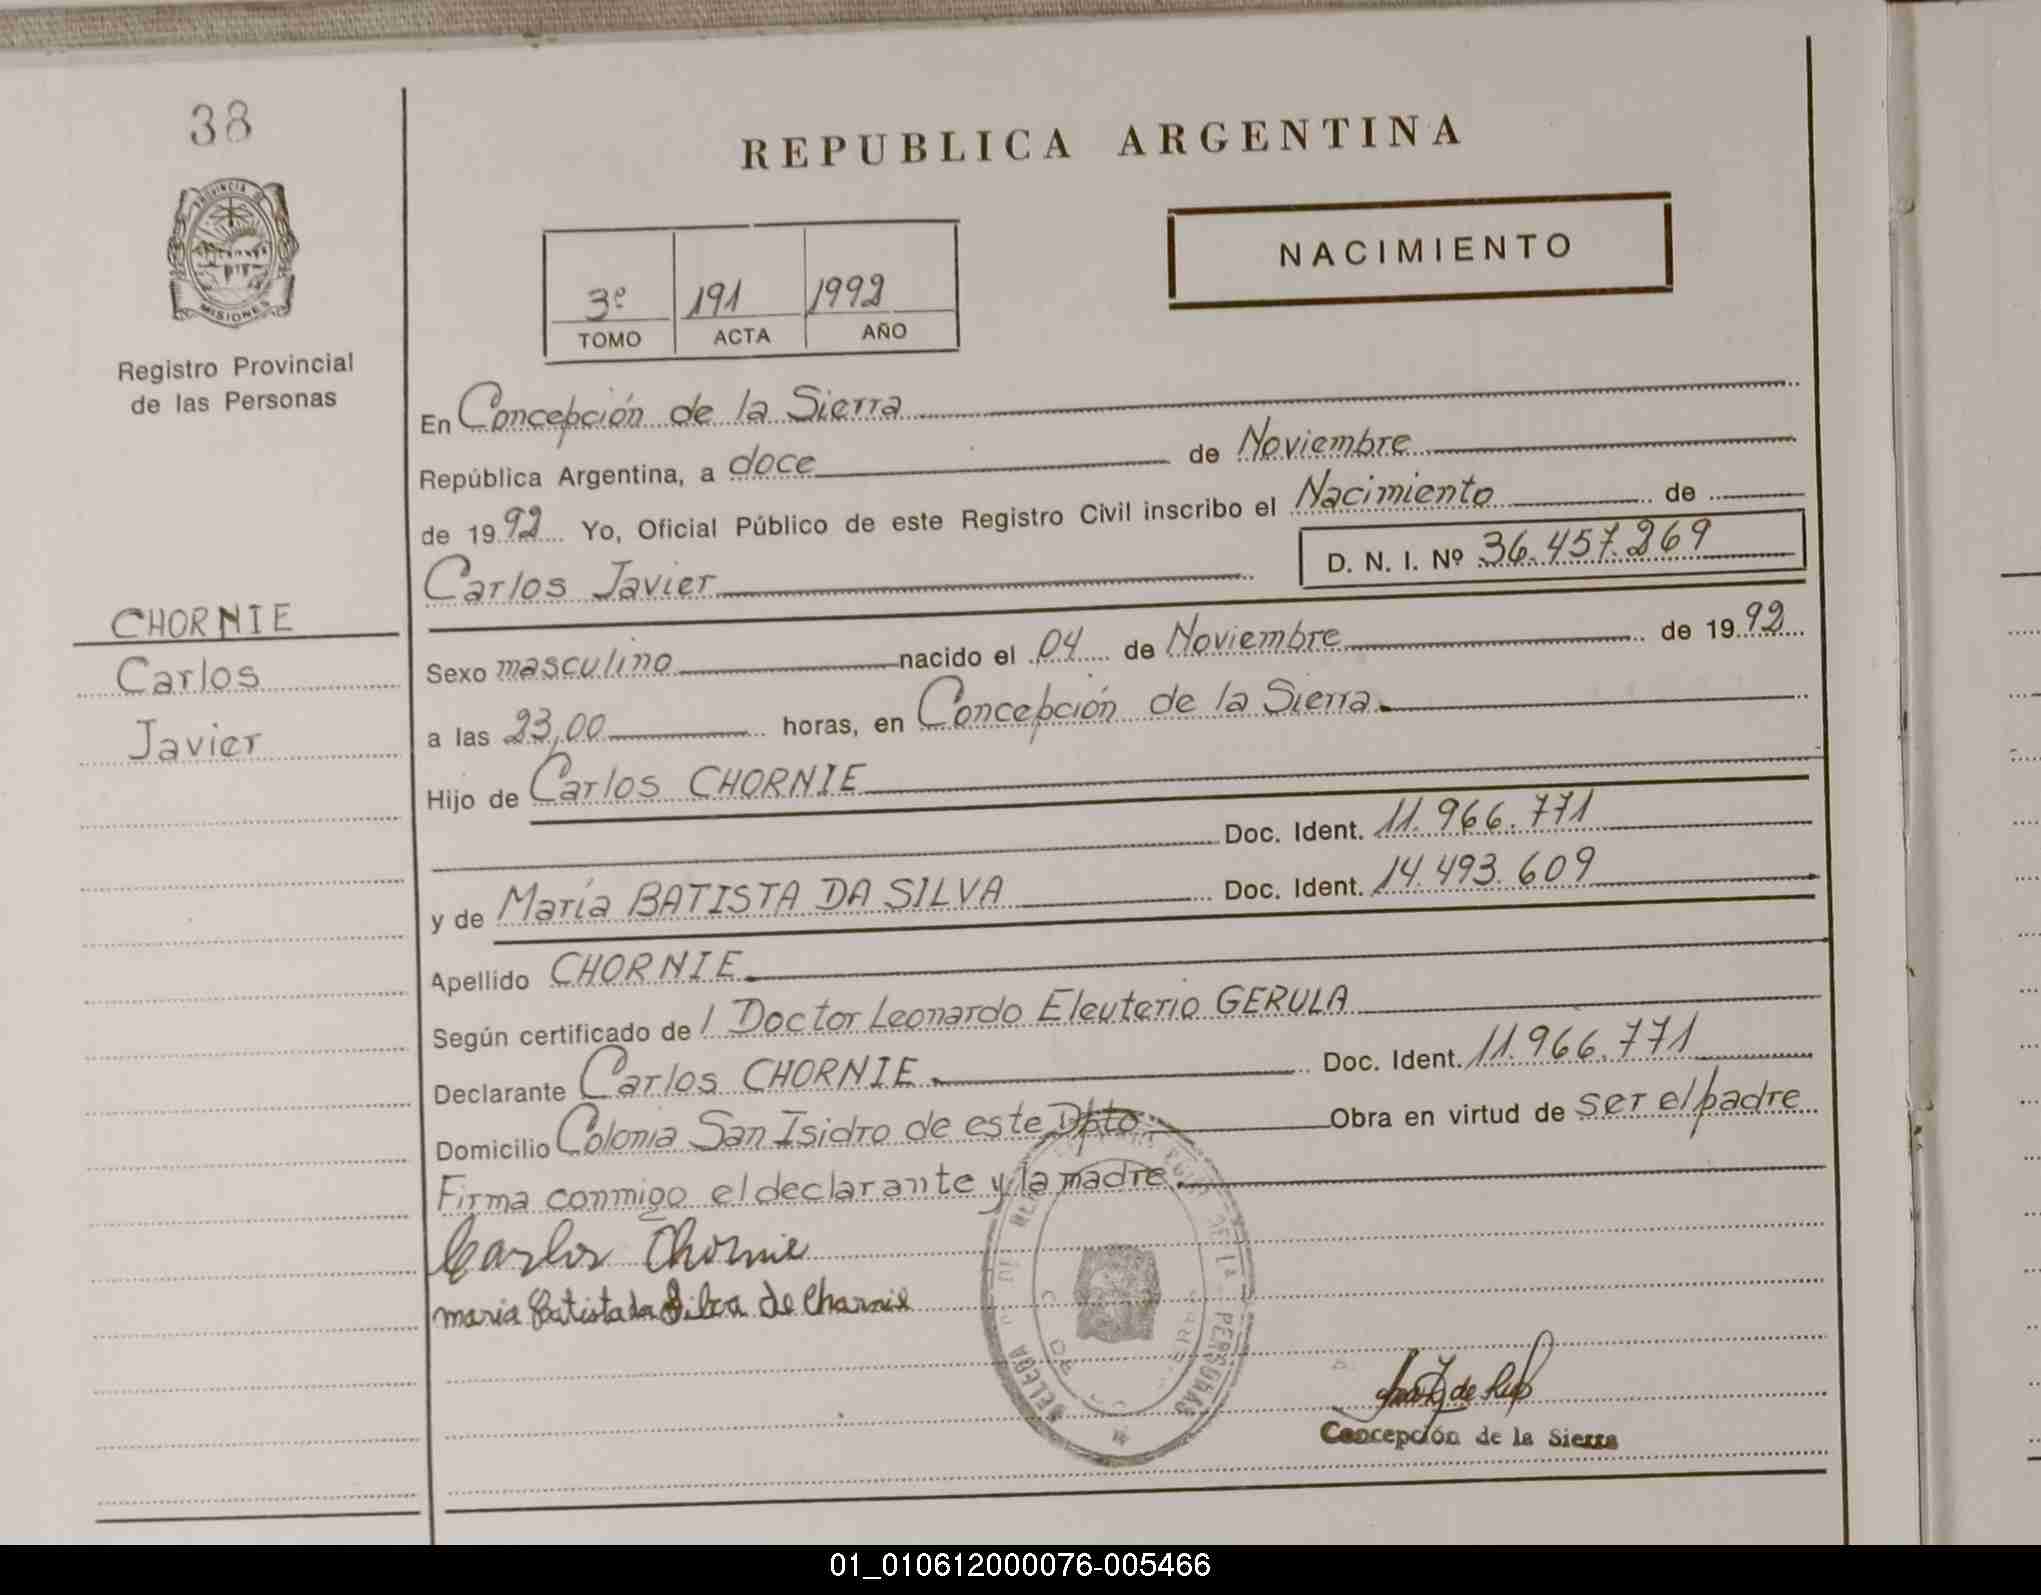 38
PROVINCIA DE
MISIONES
Registro Provincial
de las Personas
CHORNIE
Carlos
Javier
REPUBLICA ARGENTINA
NACIMIENTO
3º 191 1992
TOMO ACTA AÑO
En Concepción de la Sierra
República Argentina, a doce de Noviembre
de 1992 Yo, Oficial Público de este Registro Civil inscribo el Nacimiento de
Carlos Javier D. N. I. Nº 36.457.269
Sexo masculino nacido el 04 de Noviembre de 1992
a las 23,00 horas, en Concepción de la Sierra
Hijo de Carlos CHORNIE
Doc. Ident. 11.966.771
y de María BATISTA DA SILVA Doc. Ident. 14.493.609
Apellido CHORNIE
Según certificado de l Doctor Leonardo Eleuterio GERULA
Declarante Carlos CHORNIE Doc. Ident. 11.966.771
Domicilio Colonia San Isidro de este Dpto Obra en virtud de ser el padre
Firma conmigo el declarante y la madre.
Carlos Chornie
maria Batista da Silva de Chornie
DE LAS PERSONAS
Concepción de la Sierra
01_010612000076-005466